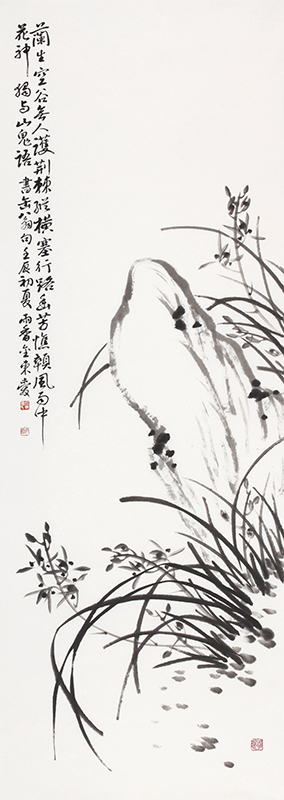 蘭生空谷無人護荆棘縱橫塞行路幽芳憔悴風雨中
花神獨与山鬼語 書缶翁句壬辰初夏 雨香金東愛